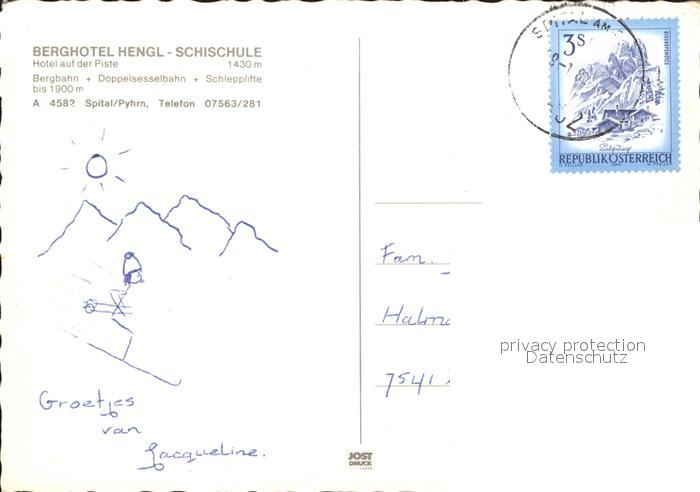 BERGHOTEL HENGL - SCHISCHULE
Hotel auf der Piste 1430 m
Bergbahn + Doppelsesselbahn + Schlepplifte
bis 1900 m
A 4582 Spital/Pyhrn, Telefon 07563/281
SPITAL AM
3 S
REPUBLIK ÖSTERREICH
Fam.
7541
privacy protection
Datenschutz
Groetjes
van
Jacqueline.
JOST
DRUCK